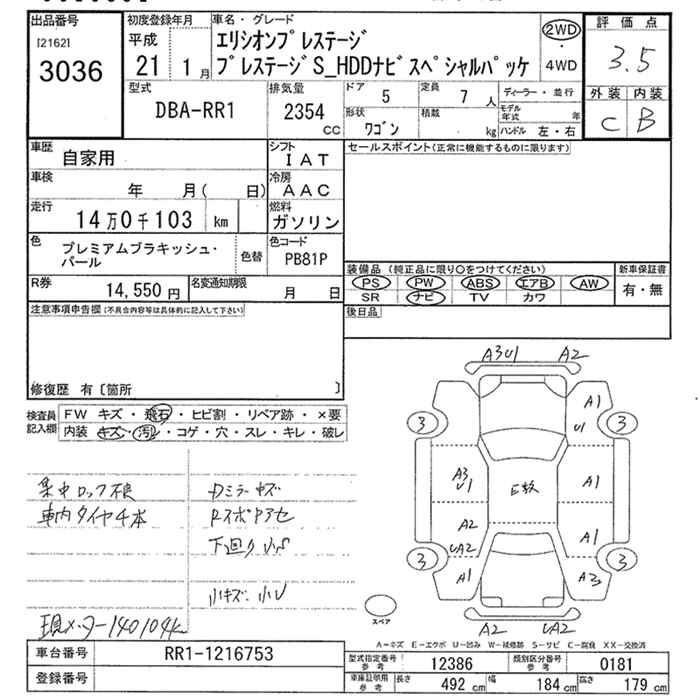 出品番号 初度登録年月 車名・グレード 評価点
[2162] 平成 エリシオンプレステージ 2WD
3036 21 1月 プレステージS_HDDナビスペシャルパッケ ・4WD 3.5
型式 排気量 ドア 5 定員 7人 ディーラー・並行 外装 内装
DBA-RR1 2354 cc 形状 ワゴン 積載 kg モデル年式 年 C B
ハンドル 左・右
車歴 自家用 シフト IAT セールスポイント(正常に機能するものに限ります)
車検 年 月( 日) 冷房 AAC
走行 14万0千103 km 燃料 ガソリン
色 プレミアムブラキッシュ・パール 色替 色コード PB81P
装備品 (純正品に限り○をつけてください) 新車保証書
R券 14,550円 名変通知期限 月 日 PS PW ABS エアB AW 有・無
SR ナビ TV カワ
注意事項申告欄(不具合内容等は具体的に記入して下さい) 後日品
修復歴 有〔箇所 〕
検査員記入欄 FW キズ・飛石・ヒビ割・リペア跡・×要
内装 キズ・汚レ・コゲ・穴・スレ・キレ・破レ
A3U1 A2
3 A1 U1 3
A3 U1 E軟 A1
A2 UA2 A1
3 A1 A2 3
A2 UA2
集中ロック不良 Dミラーキズ
車内タイヤ4本
下廻りサビ
小キズ、小U
現メーター140104k
スペア
A-キズ E-エクボ U-凹み W-補修跡 S-サビ C-腐食 XX-交換済
車台番号 RR1-1216753 型式指定番号 参考 12386 類別区分番号 参考 0181
登録番号 車庫証明用 参考 長さ 492 cm 幅 184 cm 高さ 179 cm